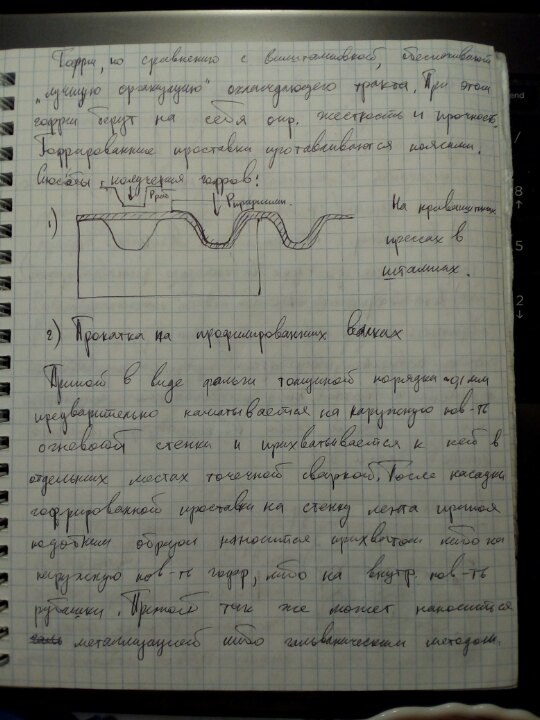 Гофры, по сравнению с выштамповкой, обеспечивают
„лучшую организацию" охлаждающего тракта. При этом
гофры берут на себя опр. жесткость и прочность.
Гофрированные проставки изготавливаются поясами.
Способы получения гофров:
Pраб
Pприжим.
1)
На кривошипных
прессах в
штампах.
2) Прокатка на профилированных валках
Припой в виде фольги толщиной порядка 0,1 мм
предварительно накатывается на наружную пов-ть
огневой стенки и прихватывается к ней в
отдельных местах точечной сваркой. После насадки
гофрированной проставки на стенку лента припоя
подобным образом наносится прихватом либо на
наружную пов-ть гофр, либо на внутр. пов-ть
рубашки. Припой так же может наноситься
металлизацией либо гальваническим методом.
end
8
5
2